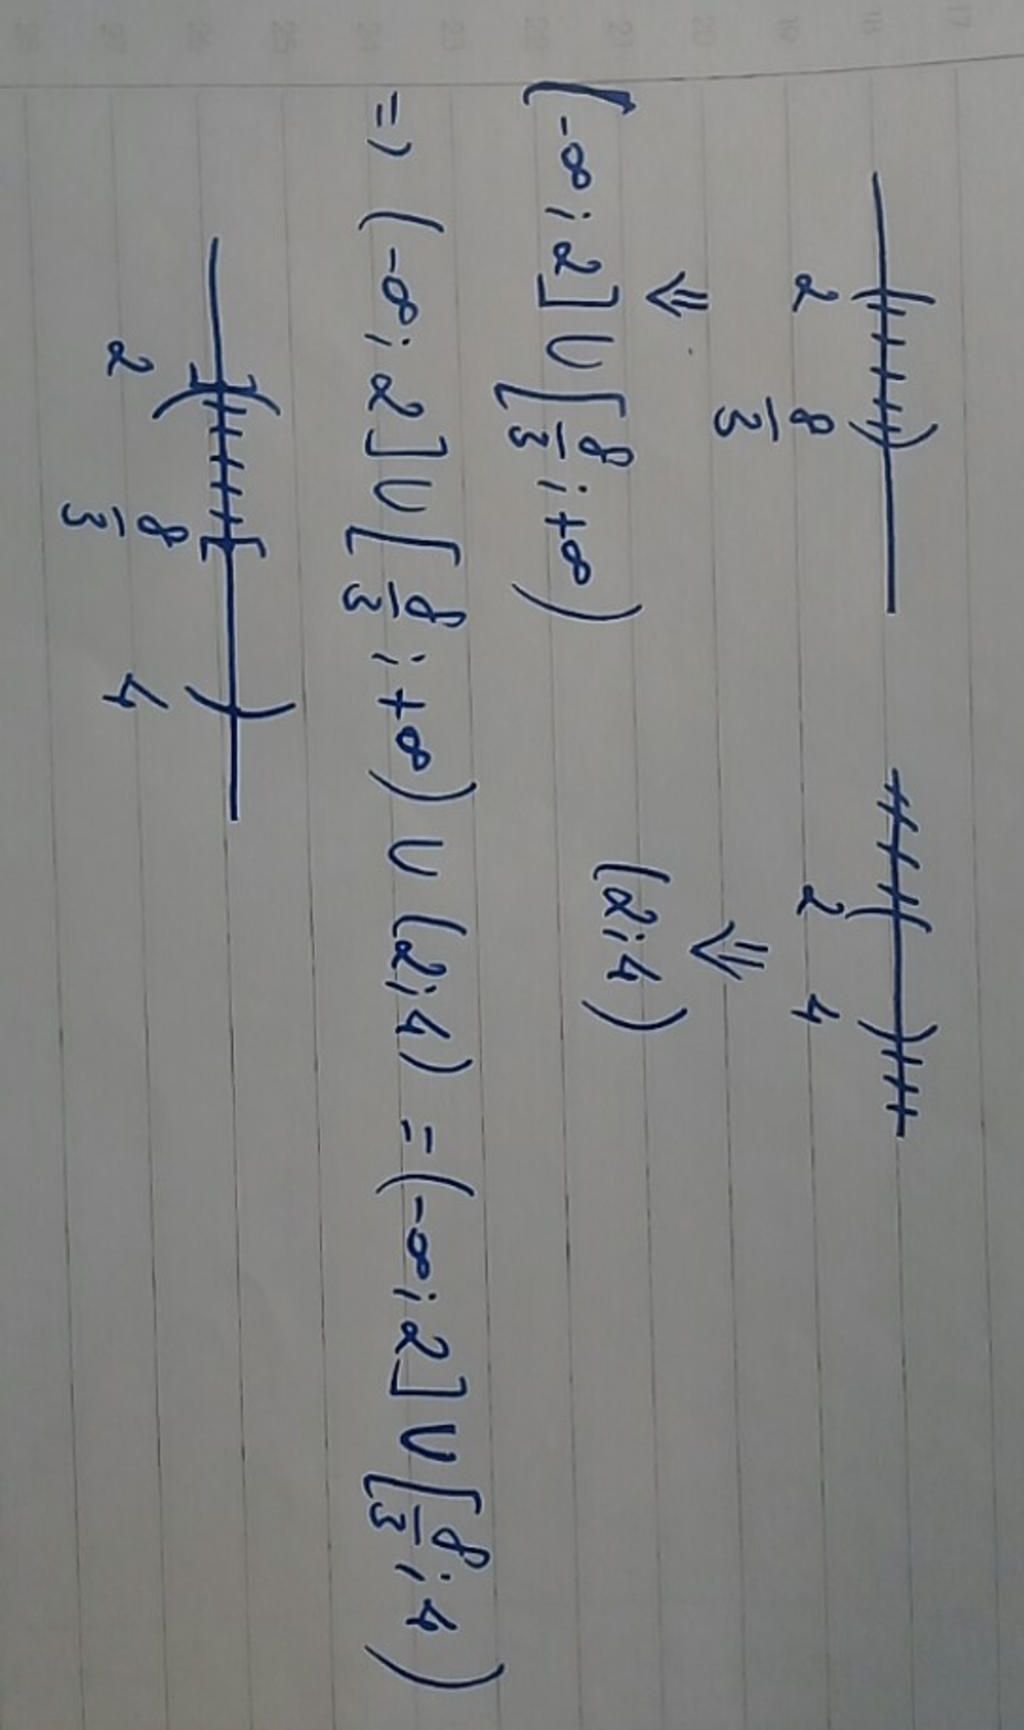 2 8/3 2 4
⇓ ⇓
(-∞; 2] ∪ [8/3; +∞) (2; 4)
=> (-∞; 2] ∪ [8/3; +∞) ∪ (2; 4) = (-∞; 2] ∪ [8/3; 4)
2 8/3 4